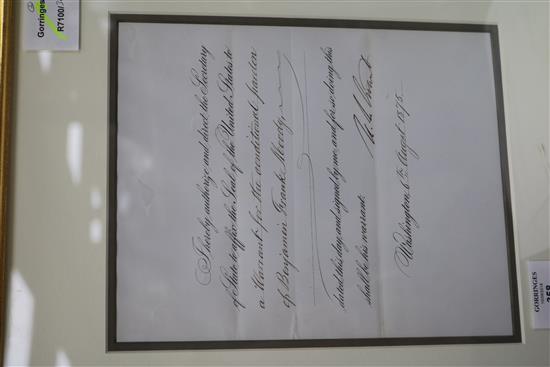 Gorringes
R7100/
I hereby authorize and direct the Secretary
of State to affix the Seal of the United States to
a Warrant for the conditional pardon
of Benjamin Frank Moody,
dated this day, and signed by me and for so doing this
shall be his warrant.
U. S. Grant
Washington, 6th August 1875.
GORRINGES
358